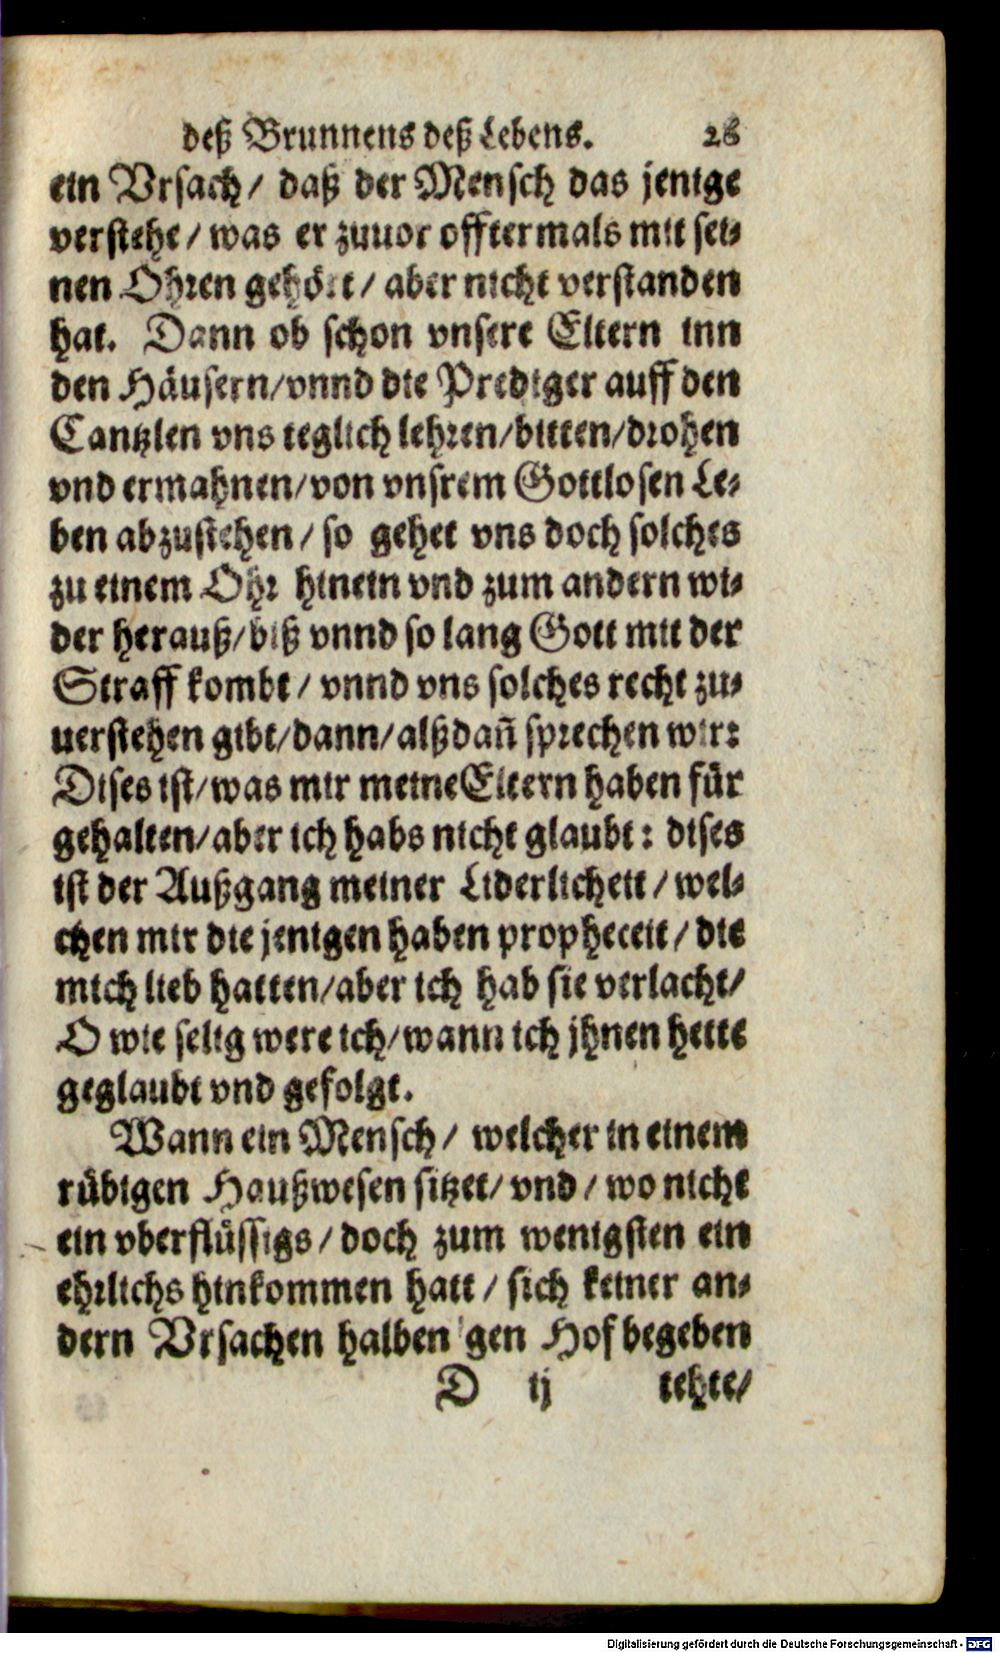 deß Brunnens deß Lebens. 28
ein Vrsach/ daß der Mensch das jenige
verstehe/ was er zuuor offtermals mit sei-
nen Ohren gehört/ aber nicht verstanden
hat. Dann ob schon vnsere Eltern inn
den Häusern/ vnnd die Prediger auff den
Cantzlen vns teglich lehren/ bitten/ drohen
vnd ermahnen/ von vnsrem Gottlosen Le-
ben abzustehen/ so gehet vns doch solches
zu einem Ohr hinein vnd zum andern wi-
der herauß/ biß vnnd so lang Gott mit der
Straff kombt/ vnnd vns solches recht zu-
uerstehen gibt/ dann/ alßdañ sprechen wir:
Dises ist/ was mir meine Eltern haben für
gehalten/ aber ich habs nicht glaubt: dises
ist der Außgang meiner Liderlicheit/ wel-
chen mir die jenigen haben propheceit/ die
mich lieb hatten/ aber ich hab sie verlacht/
O wie selig were ich/ wann ich jhnen hette
geglaubt vnd gefolgt.
Wann ein Mensch/ welcher in einem
rübigen Haußwesen sitzet/ vnd/ wo nicht
ein vberflüssigs/ doch zum wenigsten ein
ehrlichs hinkommen hatt/ sich keiner an-
dern Vrsachen halben gen Hof begeben
D ij tehte/
Digitalisierung gefördert durch die Deutsche Forschungsgemeinschaft - DFG